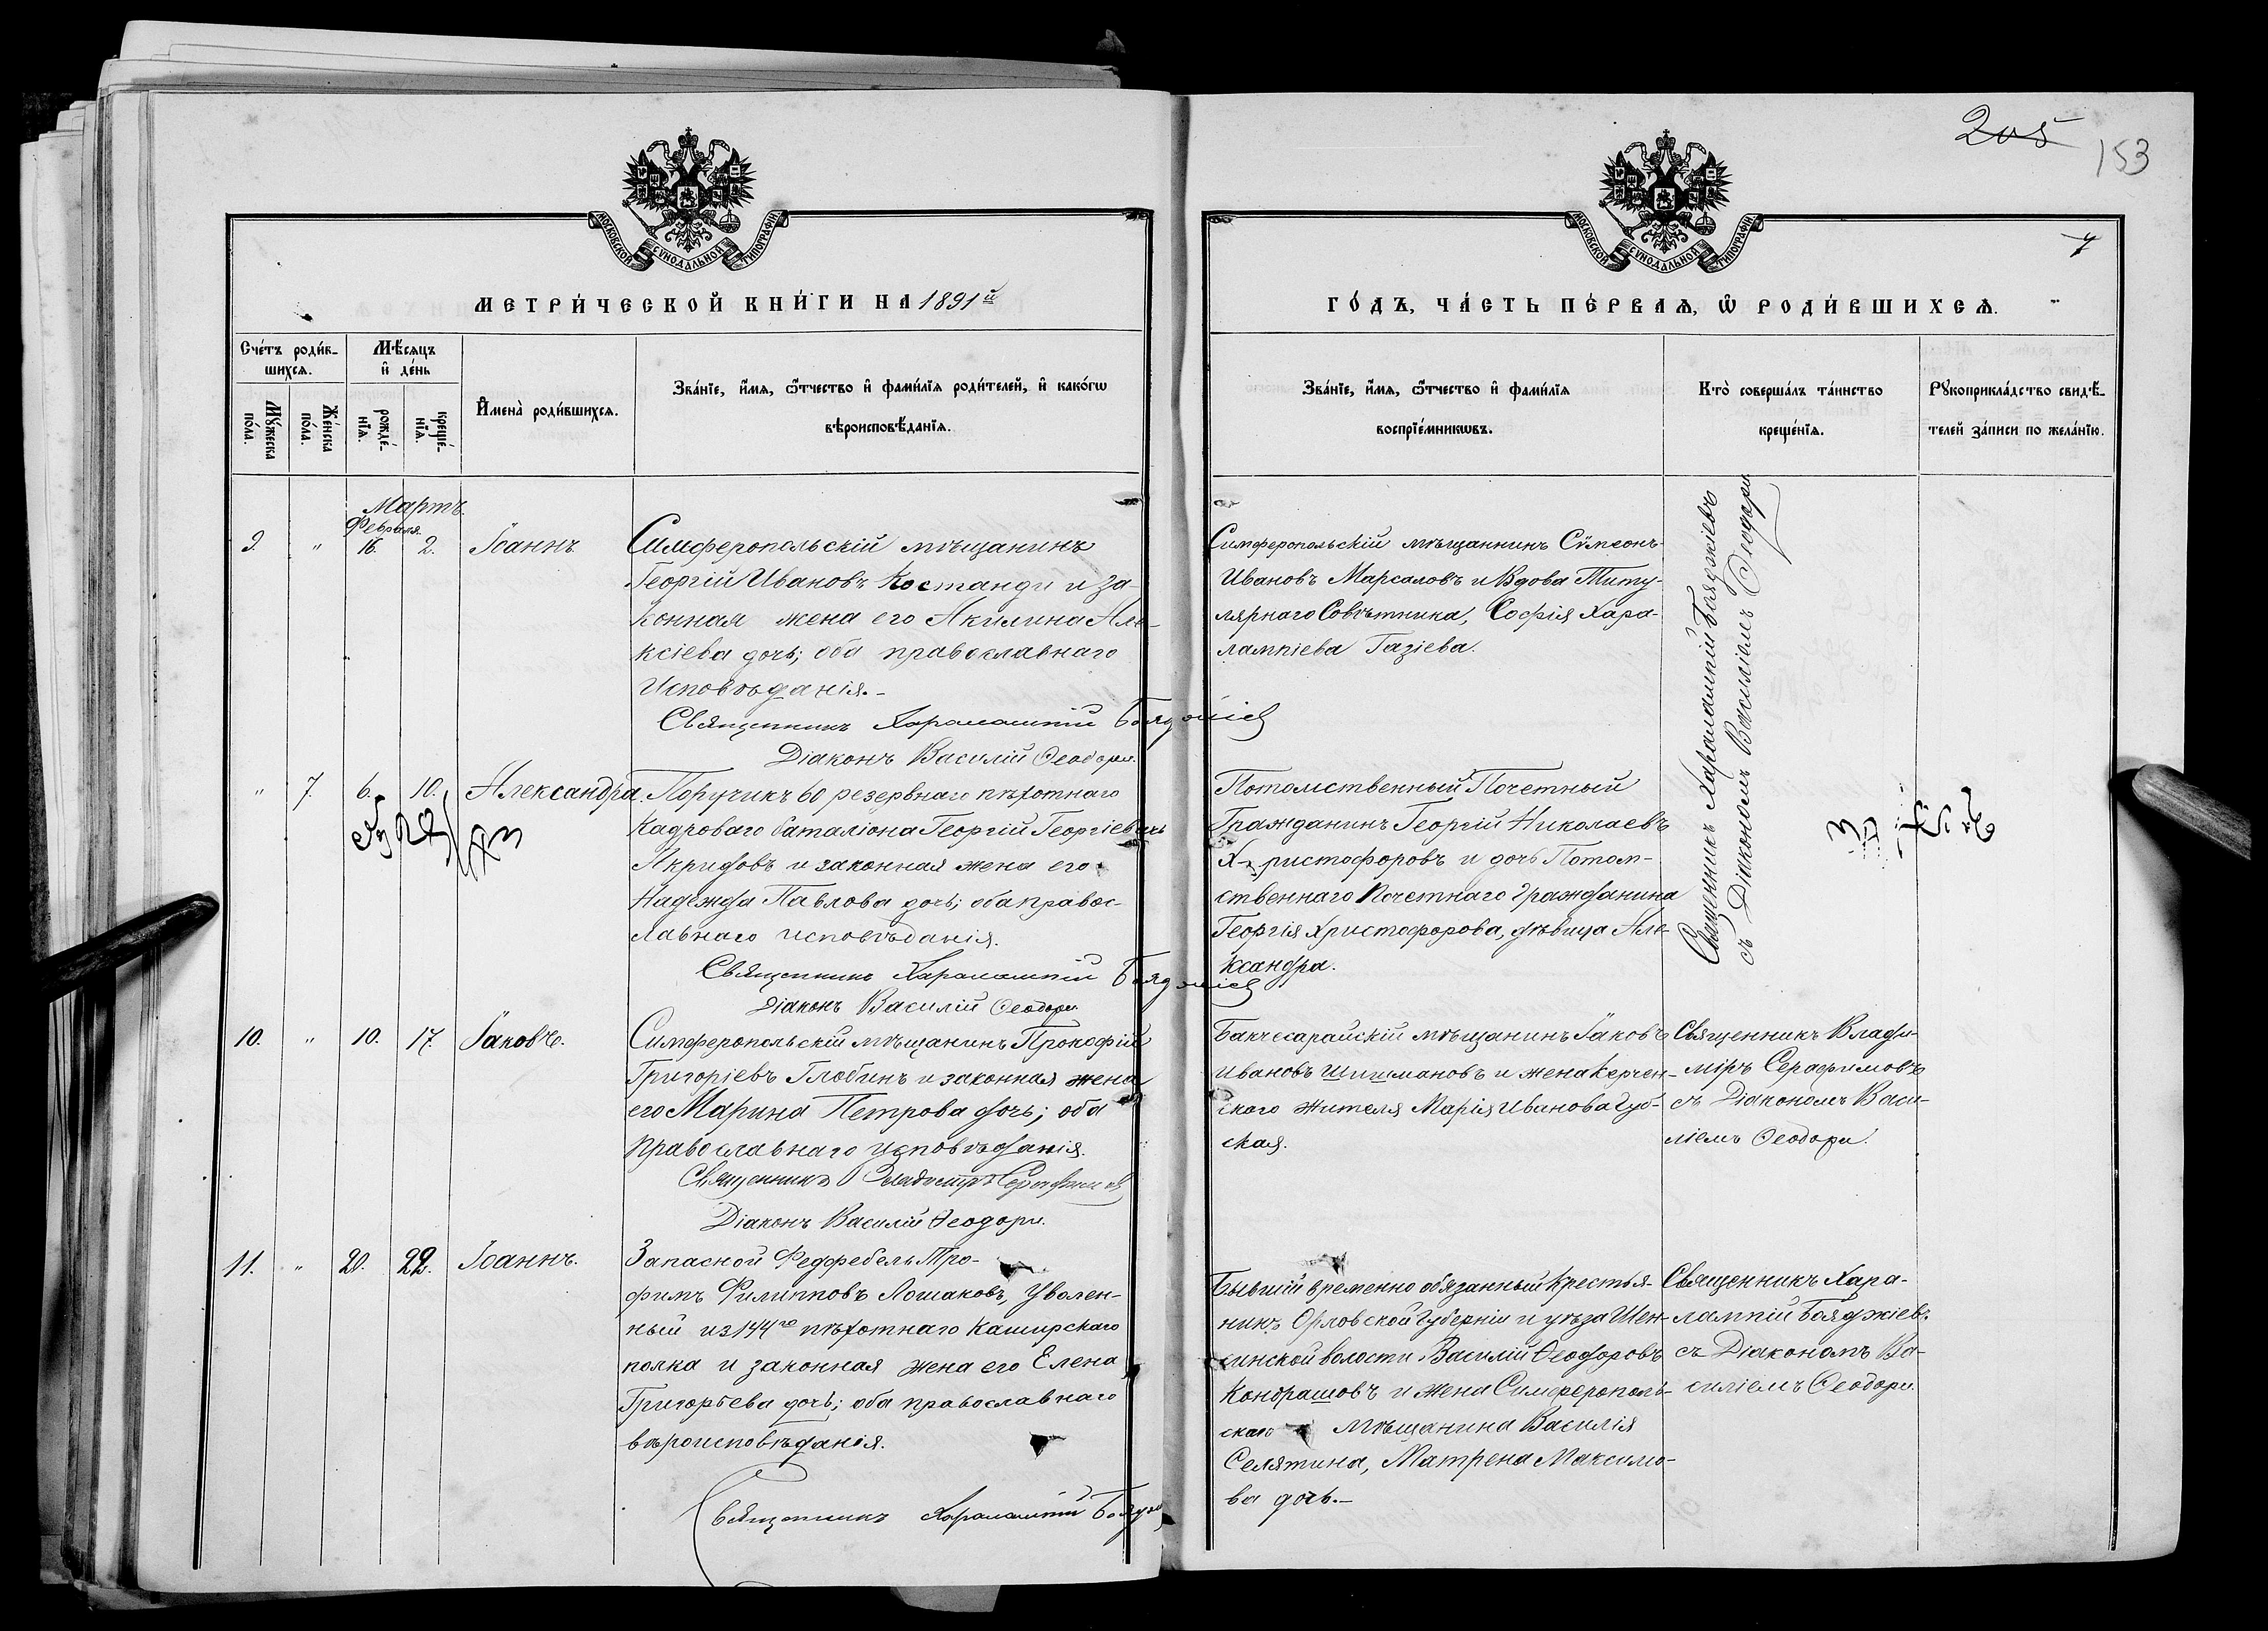 205
153
7
МОСКОВСКОЙ СѴНОДАЛЬНОЙ ТИПОГРАФІИ
МОСКОВСКОЙ СѴНОДАЛЬНОЙ ТИПОГРАФІИ
МЕТРИ́ЧЕСКОЙ КНИ́ГИ НА 1891й
ГО́ДЪ, ЧА́СТЬ ПЕ́РВАѦ, Ѡ РОДИ́ВШИХСѦ.
Счéтъ роди́в-
шихсѧ.
Мꙋ́жеска
по́ла.
Же́нска
по́ла.
Мѣ́сѧцъ
и҆ де́нь
рожде́-
нїѧ.
креще́-
нїѧ.
И҆мена̀ роди́вшихсѧ.
Зва́нїе, и҆́мѧ, ѻ҆́тчество и҆ фами́лїѧ роди́телей, и҆ како́гѡ
вѣроисповѣ́данїѧ.
Зва́нїе, и҆́мѧ, ѻ҆́тчество и҆ фами́лїѧ
воспрїе́мникѡвъ.
Кто̀ соверша́лъ та́инство
креще́нїѧ.
Рꙋкоприкла́дство свидѣ́-
телей за́писи по жела́нїю.
Мартъ.
Февраля.
9. " 16. 2. Іоаннъ
Симферопольскій мѣщанинъ
Георгій Ивановъ Костанди и за-
конная жена его Акилина Але-
ксіева дочь; оба православнаго
Исповѣданія.-
Священникъ Харалампій Бояджіев
Діаконъ Василій Ѳеодори.
Симферопольскій мѣщаннинъ Сѵмеонъ
Ивановъ Марсаловъ и Вдова Титу-
лярнаго Совѣтника, Софія Хара-
лампіева Газіева.
Священникъ Харалампій Бояджіевъ
съ Діакономъ Василіемъ Ѳеодори
" 7. 6. 10. Александра.
Поручикъ 60 резервнаго пѣхотнаго
Кадроваго баталіона Георгій Георгіевичъ
Акрифовъ и законная жена его
Надежда Павлова дочь; оба правос-
лавнаго исповѣданія.
Священникъ Харалампій Бояджіев
Діаконъ Василій Ѳеодори.
Потомственный Почетный
Гражданинъ Георгій Николаевъ
Христофоровъ и дочь Потом-
ственнаго Почетнаго Гражданина
Георгія Христофорова, дѣвица Але-
ксандра.
10. " 10. 17. Іаковъ.
Симферопольскій мѣщанинъ Прокофій
Григоріевъ Глобинъ и законная жена
его Марина Петрова дочь; оба
православнаго исповѣданія.
Священникъ Владиміръ Серафимовъ
Діаконъ Василій Ѳеодори.
Бакчесарайскій мѣщанинъ Іаковъ
Ивановъ Шишмановъ и жена Керчен-
скаго жителя Марія Иванова Губ-
ская.
Священникъ Влади-
міръ Серафимовъ
съ Діакономъ Васи-
ліемъ Ѳеодори.
11. " 20. 22. Іоаннъ.
Запасной Федфебель Тро-
фимъ Филипповъ Лошаковъ, Уволен-
ный из 144го пѣхотнаго Каширскаго
полка и законная жена его Елена
Григорьева дочь; оба православнаго
вѣроисповѣданія.
Священникъ Харалампій Бояджі
Бывшій временно обязанный крестья-
нинъ Орловской Губерніи и уѣзда Шен-
синской волости Василій Ѳеодоровъ
Кондрашовъ и жена Симферополь-
скаго Мѣщанина Василія
Селятина, Матрена Максимо-
ва дочь.-
Священникъ Хара-
лампій Бояджіевъ.
съ Діакономъ Ва-
силіемъ Ѳеодори.